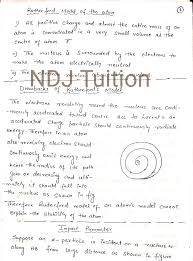 Rutherford Model of the atom
1) All positive charge and almost the entire mass of an
atom is concentrated in a very small volume at the
centre of atom
2) The nucleus is surrounded by the electrons to
make the atom electrically neutral
NDJ Tuition
Drawbacks of Rutherford's Model
The electrons revolving round the nucleus are conti-
nuously accelerated toward centre acc. to Lorentz an
accelerated charge particle should continuously radiate
energy. Therefore in an atom
also revolving electron should
continuously emit energy and
hence the radius of its path
goes on decreasing and ulti-
mately it should fall into
the nucleus as shown in fig.
Therefore Rutherford model of an atom's model cannot
explain the stability of the atom
Impact Parameter
Suppose an α-particle is incident on a nucleus
along AB from large distance as shown in fig